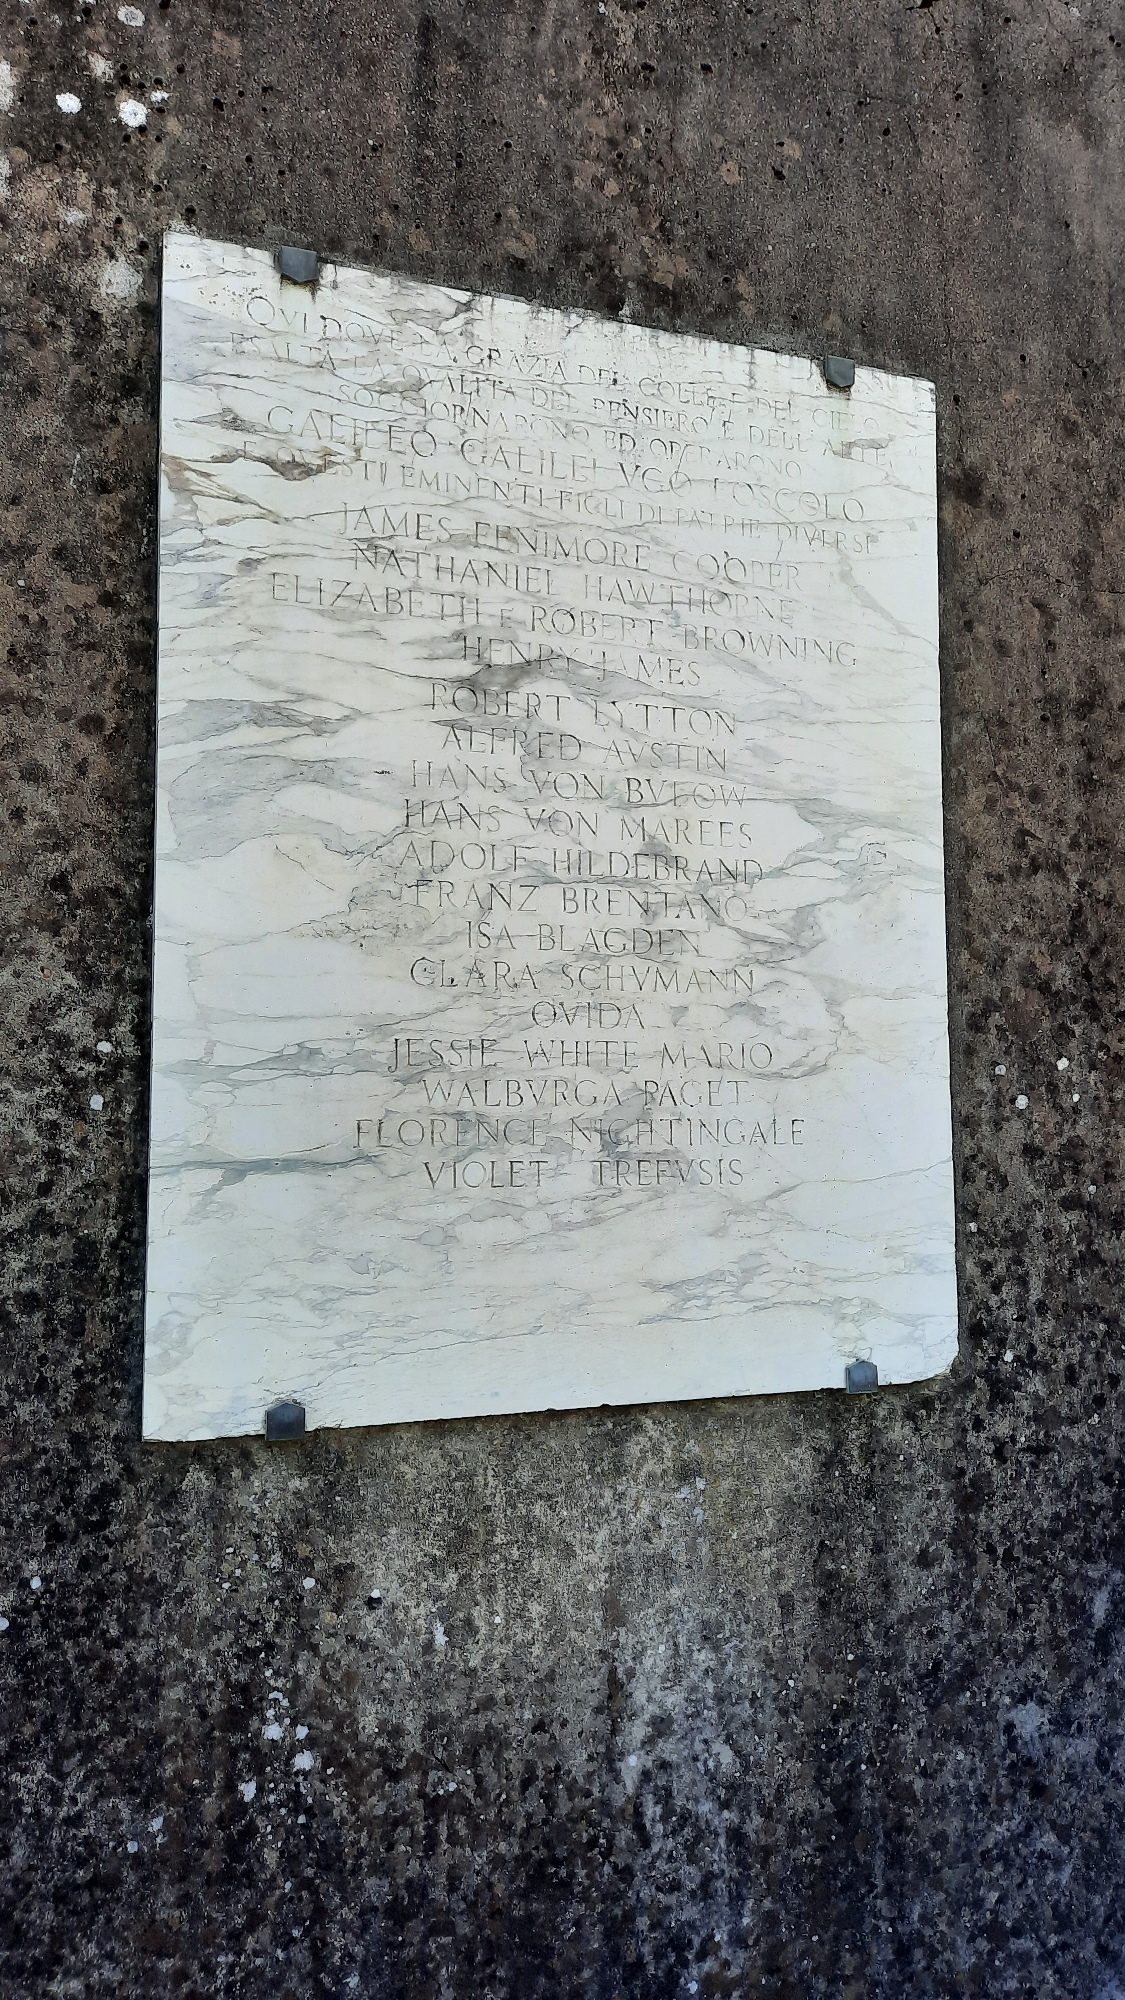 QVI DOVE LA GRAZIA DEL COLLE E DEL CIELO
ESALTA LA QVALITA DEL PENSIERO E DELL'ARTE
SOGGIORNARONO ED OPERARONO
GALILEO GALILEI VGO FOSCOLO
E QVESTI EMINENTI FIGLI DI PATRIE DIVERSE
JAMES FENIMORE COOPER
NATHANIEL HAWTHORNE
ELIZABETH E ROBERT BROWNING
HENRY JAMES
ROBERT LYTTON
ALFRED AVSTIN
HANS VON BVLOW
HANS VON MAREES
ADOLF HILDEBRAND
FRANZ BRENTANO
ISA BLAGDEN
CLARA SCHVMANN
OVIDA
JESSIE WHITE MARIO
WALBVRGA PAGET
FLORENCE NIGHTINGALE
VIOLET TREFVSIS